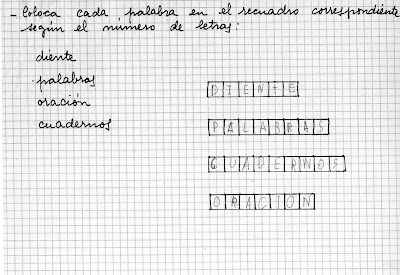 - Coloca cada palabra en el recuadro correspondiente
según el número de letras:
diente
palabras
oración
cuadernos
DIENTE
PALABRAS
CUADERNOS
ORACION